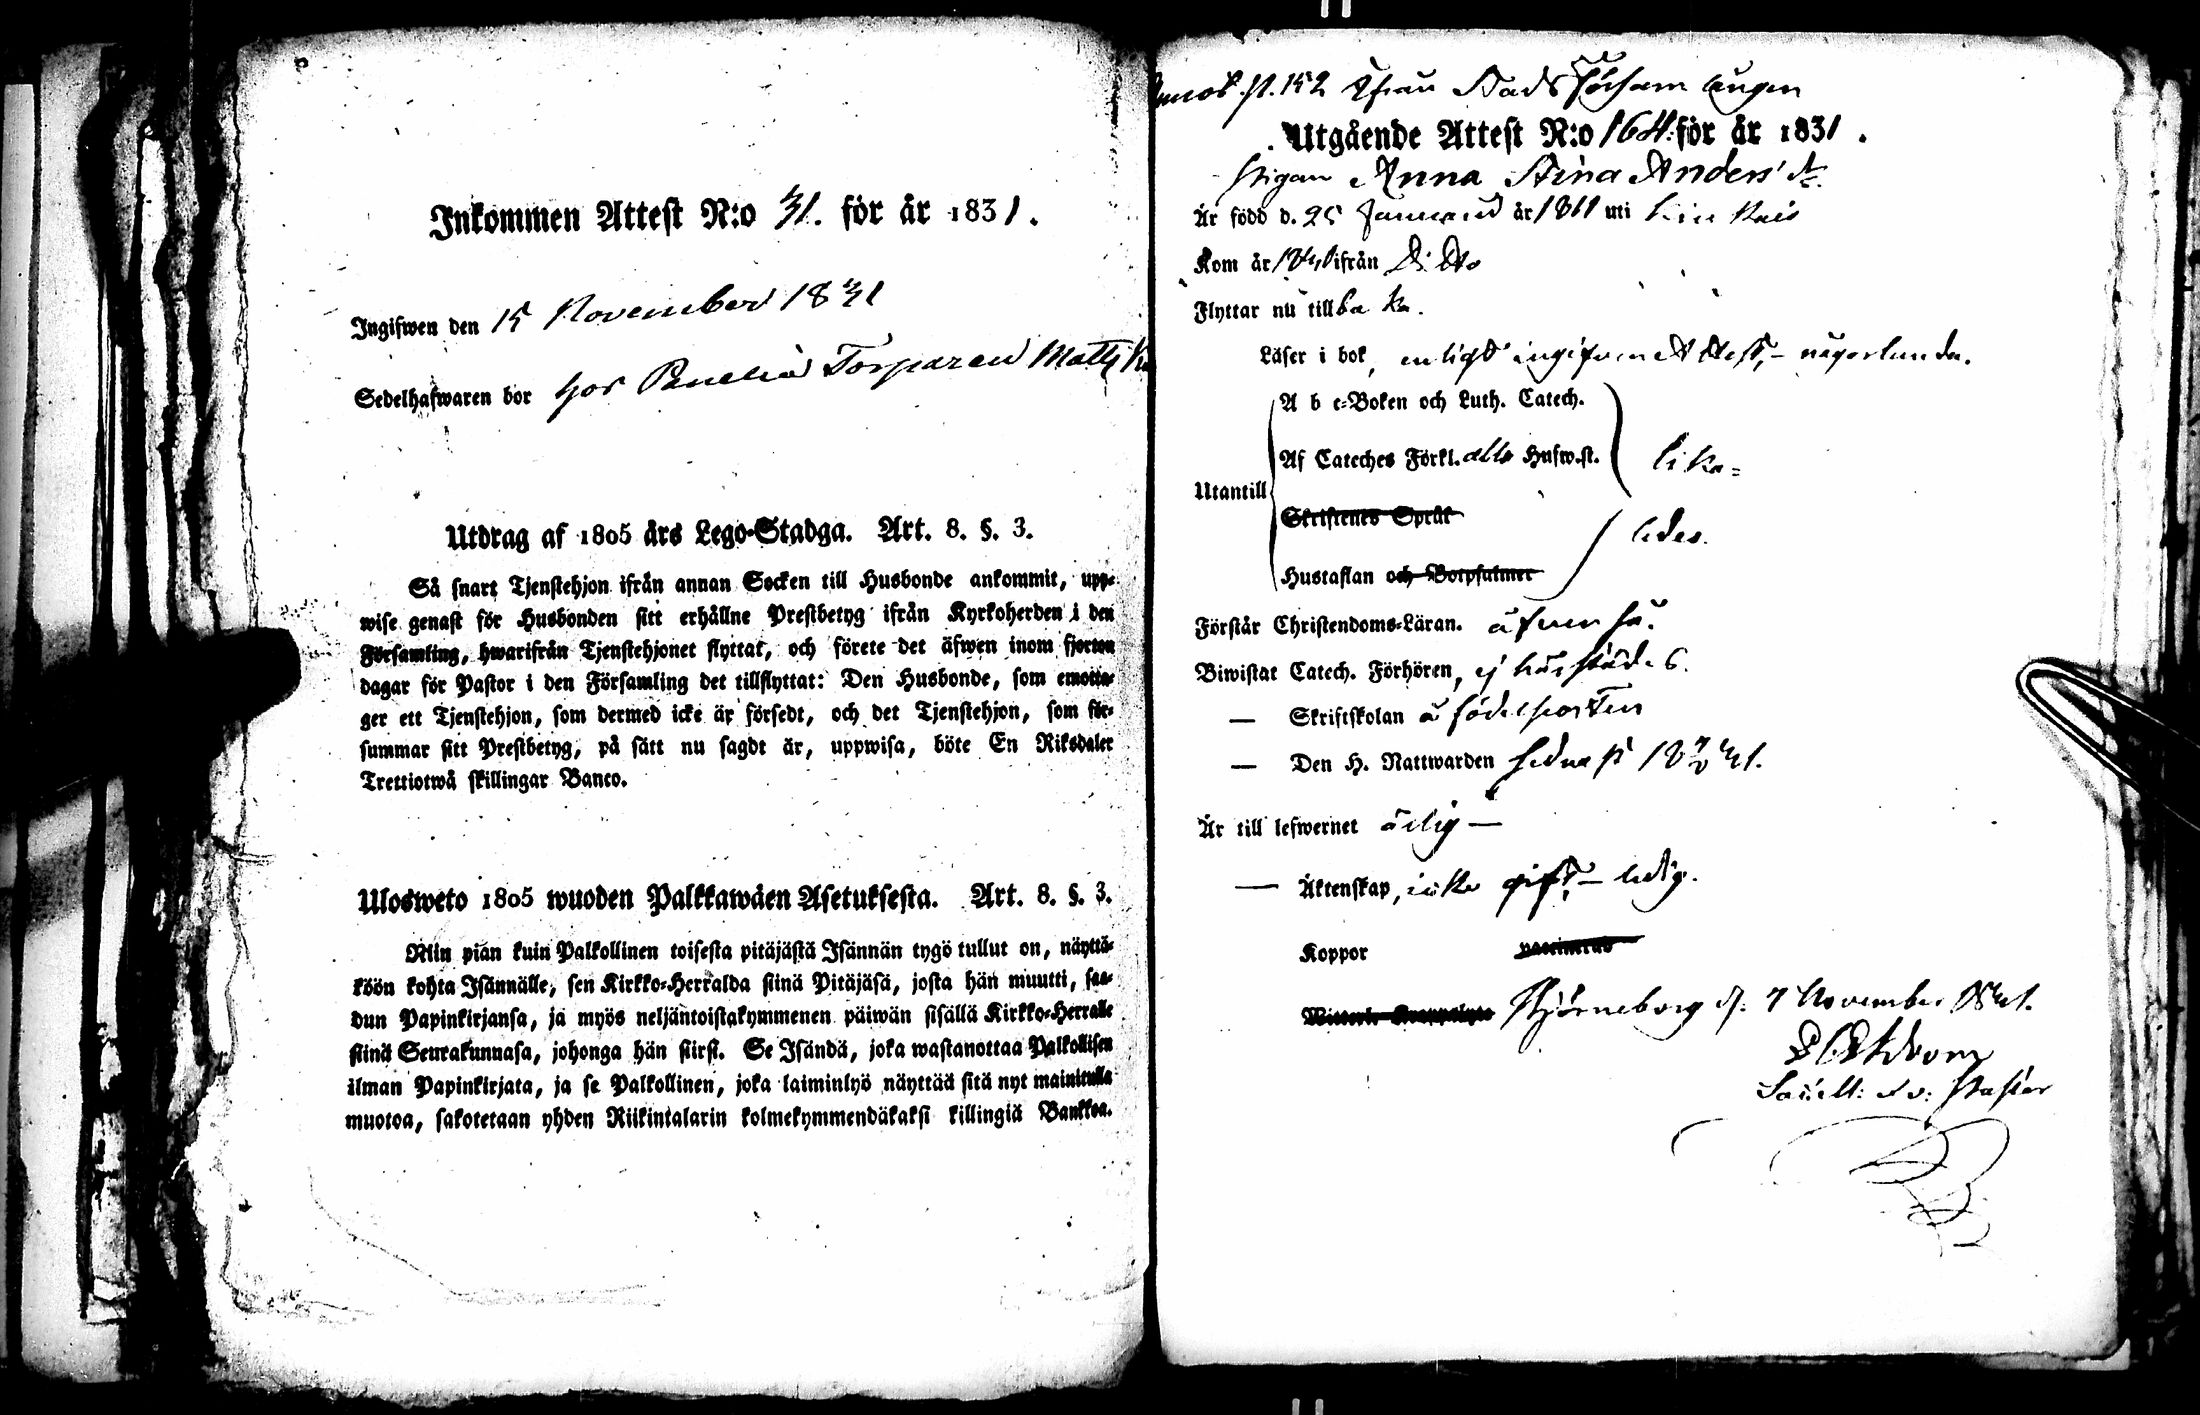 Inkommen Attest N:o 31. för år 1831.
Ingifwen den 15 November 1831
Sedelhafwaren bor hos Panelia Torparen Matts
Utdrag af 1805 års Lego-Stadga. Art. 8. §. 3.
Så snart Tjenstehjon ifrån annan Socken till Husbonde ankommit, upp-
wise genast för Husbonden sitt erhållne Prestbetyg ifrån Kyrkoherden i den
Församling, hwarifrån Tjenstehjonet flyttat, och förete det äfwen inom fjorton
dagar för Pastor i den Församling det tillflyttat: Den Husbonde, som emotta-
ger ett Tjenstehjon, som dermed icke är försedt, och det Tjenstehjon, som för-
summar sitt Prestbetyg, på sätt nu sagdt är, uppwisa, böte En Riksdaler
Trettiotwå skillingar Banco.
Ulosweto 1805 wuoden Palkkawäen Asetuksesta. Art. 8. §. 3.
Niin pian kuin Palkollinen toisesta pitäjästä Isännän tygö tullut on, näyttä-
köön kohta Isännälle, sen Kirkko-Herralda siinä Pitäjäsä, josta hän muutti, saa-
dun Papinkirjansa, ja myös neljäntoistakymmenen päiwän sisällä Kirkko-Herralle
siinä Seurakunnasa, johonga hän siirst. Se Isändä, joka wastanottaa Palkollisen
ilman Papinkirjata, ja se Palkollinen, joka laiminlyö näyttää sitä nyt mainitulla
muotoa, sakotetaan yhden Riikintalarin kolmekymmendäkaksi killingiä Bankkoa.
p. 152 Ifrån Stads Församlingen
Utgående Attest N:o 164. för år 1831.
Pigan Anna Stina Anders' dr.
Är född d. 25 Januarii år 1811 uti
Kom år ifrån Ditto
Flyttar nu tillbaka.
Läser i bok, enligt ingifven Attest, - någorlunda.
A b c-Boken och Luth. Catech.
Af Cateches Förkl. alla Hufw.st. lika=
Utantill
Skriftenes Språk
ledes.
Hustaflan och Botpsalmer
Förstår Christendoms-Läran. äfven så.
Biwistat Catech. Förhören, ej härstädes.
— Skriftskolan å födelseorten
— Den H. Nattwarden sednast
Är till lefwernet ärlig —
— Äktenskap, icke gift, - ledig.
Koppor vaccinerad
Björneborg d. 7 November 1831.
v: Pastor